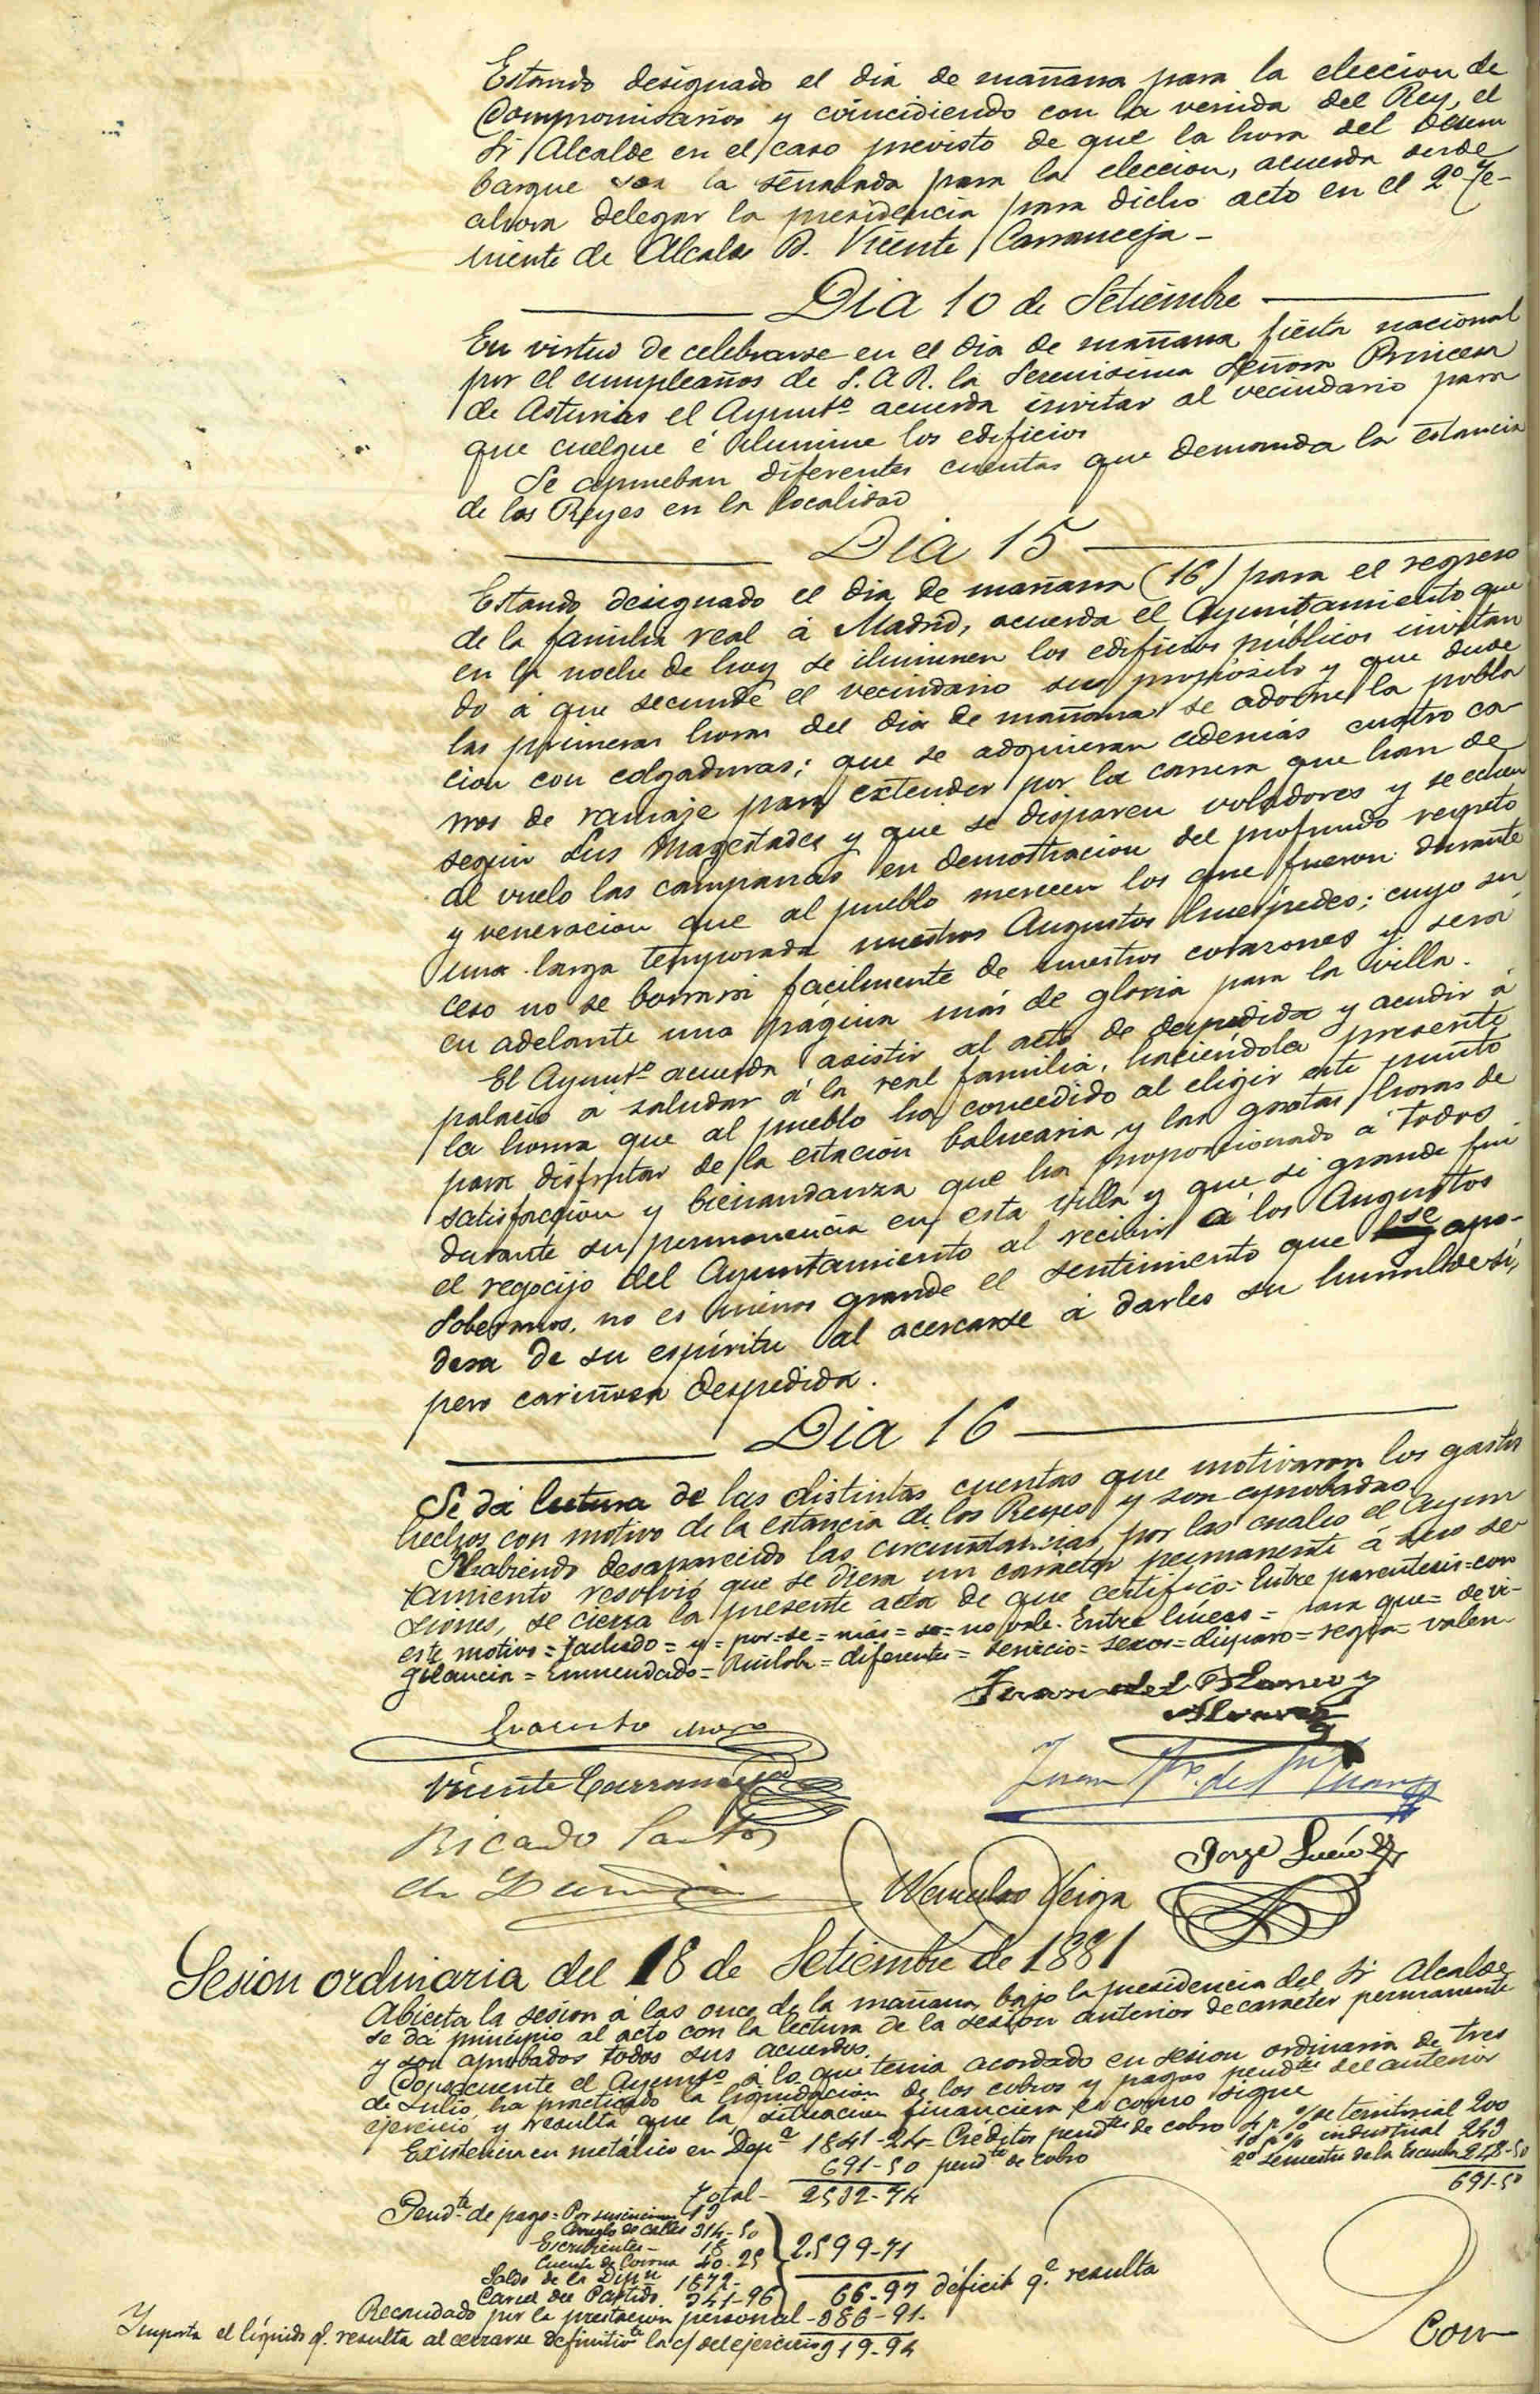 Estando designado el dia de mañana para la eleccion de
Compromisarios y coincidiendo con la venida del Rey, el
Sr Alcalde en el caso previsto de que la hora del desem
barque sea la señalada para la eleccion, acuerda desde
ahora delegar la presidencia para dicho acto en el 2º Te-
niente de Alcalde D. Vicente Carranceja -
Dia 10 de Setiembre
En virtud de celebrarse en el dia de mañana fiesta nacional
por el cumpleaños de S. A R. la Serenisima Señora Princesa
de Asturias el Ayuntº acuerda invitar al vecindario para
que cuelgue é ilumine los edificios
Se aprueban diferentes cuentas que demanda la estancia
de los Reyes en la localidad
Dia 15
Estando designado el dia de mañana (16) para el regreso
de la familia real á Madrid, acuerda el Ayuntamiento que
en la noche de hoy se iluminen los edificios públicos invitan
do á que secunde el vecindario su propósito y que desde
las primeras horas del dia de mañana se adorne la pobla
cion con colgaduras; que se adquieran además cuatro ca-
rros de ramaje para extender por la carrera que han de
seguir Sus Magestades y que se disparen voladores y se echen
al vuelo las campanas en demostracion del profundo respeto
y veneracion que al pueblo merecen los que fueron durante
una larga temporada nuestros Augustos huéspedes; cuyo su
ceso no se borrará facilmente de nuestros corazones y será
en adelante una página más de gloria para la villa.
El Ayuntº acuerda asistir al acto de despedida y acudir á
palacio á saludar á la real familia, haciéndola presente
la honra que al pueblo ha concedido al eligir este punto
para disfrutar de la estación balnearia y las gratas horas de
satisfacción y bienandanza que ha proporcionado á todos
durante su permanencia en esta villa y que si grande fué
el regocijo del Ayuntamiento al recibir á los Augustos
Soberanos, no es menos grande el sentimiento que se apo-
dera de su espíritu al acercarse á darles su humilde sí,
pero cariñosa despedida.
Dia 16
Se dá lectura de las distintas cuentas que motivaron los gastos
hechos con motivo de la estancia de los Reyes y son aprobadas.
Habiendo desaparecido las circunstancias, por las cuales el Ayun
tamiento resolvió que se diera un carácter permanente á sus se-
siones, se cierra la presente acta de que certifico = Entre parentesis = con
este motivo = Tachado = y = por = se = más = se = no vale. Entre líneas = para que = de vi-
gilancia = Enmendado = = diferentes = servicio = = disparo = = valen
Evaristo Moro
Juan del Blanco y
Alvarez
Vicente Carranceja
Juan
Ricardo Santos
de
Wenceslao Veiga
Jorge
Sesion ordinaria del 18 de Setiembre de 1881
Abierta la sesion á las once de la mañana, bajo la presidencia del Sr Alcalde,
se dá principio al acto con la lectura de la sesion anterior de carácter permanente
y son aprobados todos sus acuerdos.
Consecuente el Ayuntº á lo que tenia acordado en sesion ordinaria de tres
de Julio, ha practicado la liquidacion de los cobros y pagos pendtes del anterior
ejercicio y resulta que la situacion financiera es como sigue
Existencia en metálico en Depª 1841-24 - Créditos pendtes de cobro 4 p % de territorial 200
10 p % industrial 243
691-50 pendte de cobro 2º semestre de la Escuela 248-50
691-50
Total - 2532-74
Pendte de pago = Por suscriciones 13
Arreglo de calles 314-50
Escribientes - 18
Cuenta de Corona 40-25
Saldo de la Dipn 1872-
Carcel del Partido. 341-96
2.599-71
66-97 déficit qe. resulta
Recaudado por la prestacion personal - 386-91.
Importa el líquido q. resulta al cerrarse definitivte la c/ del ejercicio 319-94
Con